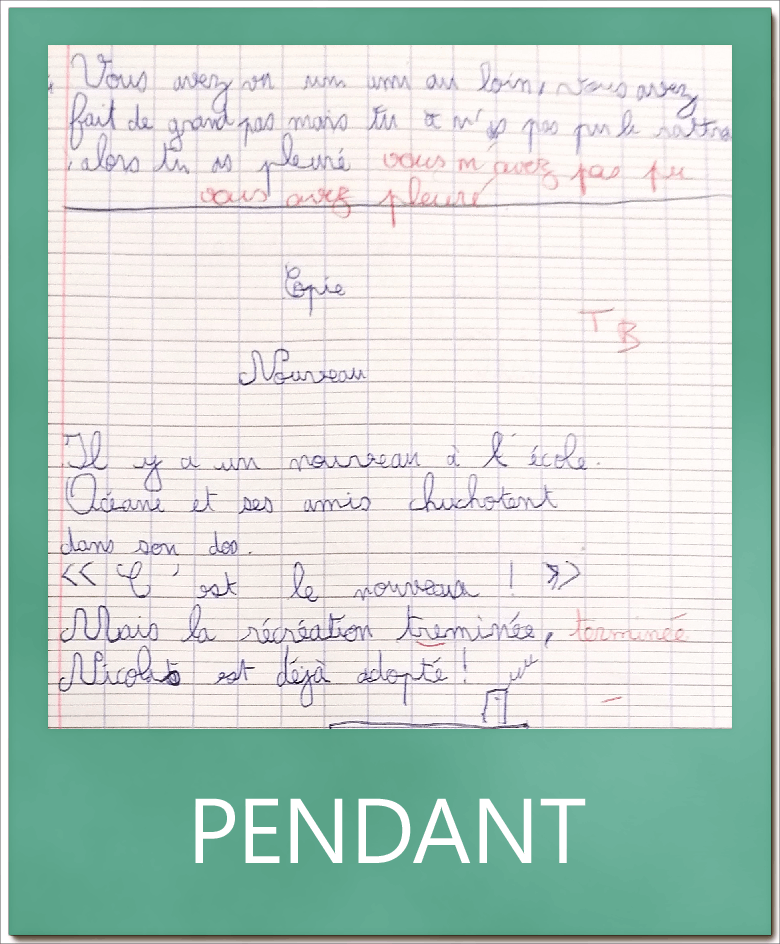 Vous avez vu un ami au loin, vous avez
fait de grand pas mais tu n'as pas pu le rattra
alors tu as pleuré vous m'avez pas pu
vous avez pleuré
Copie
T B
Nouveau
Il y a un nouveau à l'école.
Océane et ses amis chuchotent
dans son dos.
<< C'est le nouveau ! >>
Mais la récréation treminée, terminée
Nicolas est déjà adopté !
PENDANT